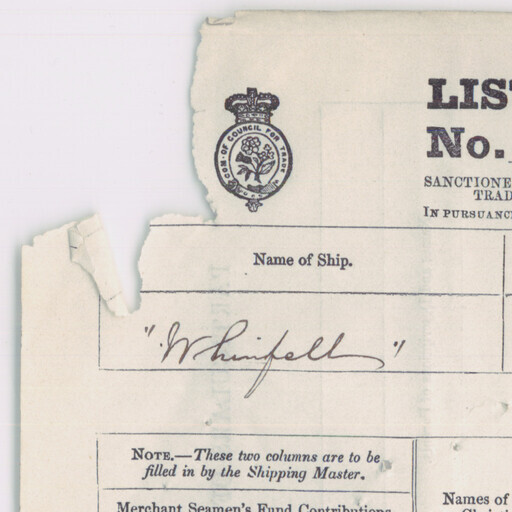 LIS
No.
COM. OF COUNCIL FOR TRADE
SANCTIONE
TRAD
IN PURSUANC
Name of Ship.
"Whinfell"
NOTE.—These two columns are to be
filled in by the Shipping Master.
Merchant Seamen's Fund Contributions
Names of
Christ